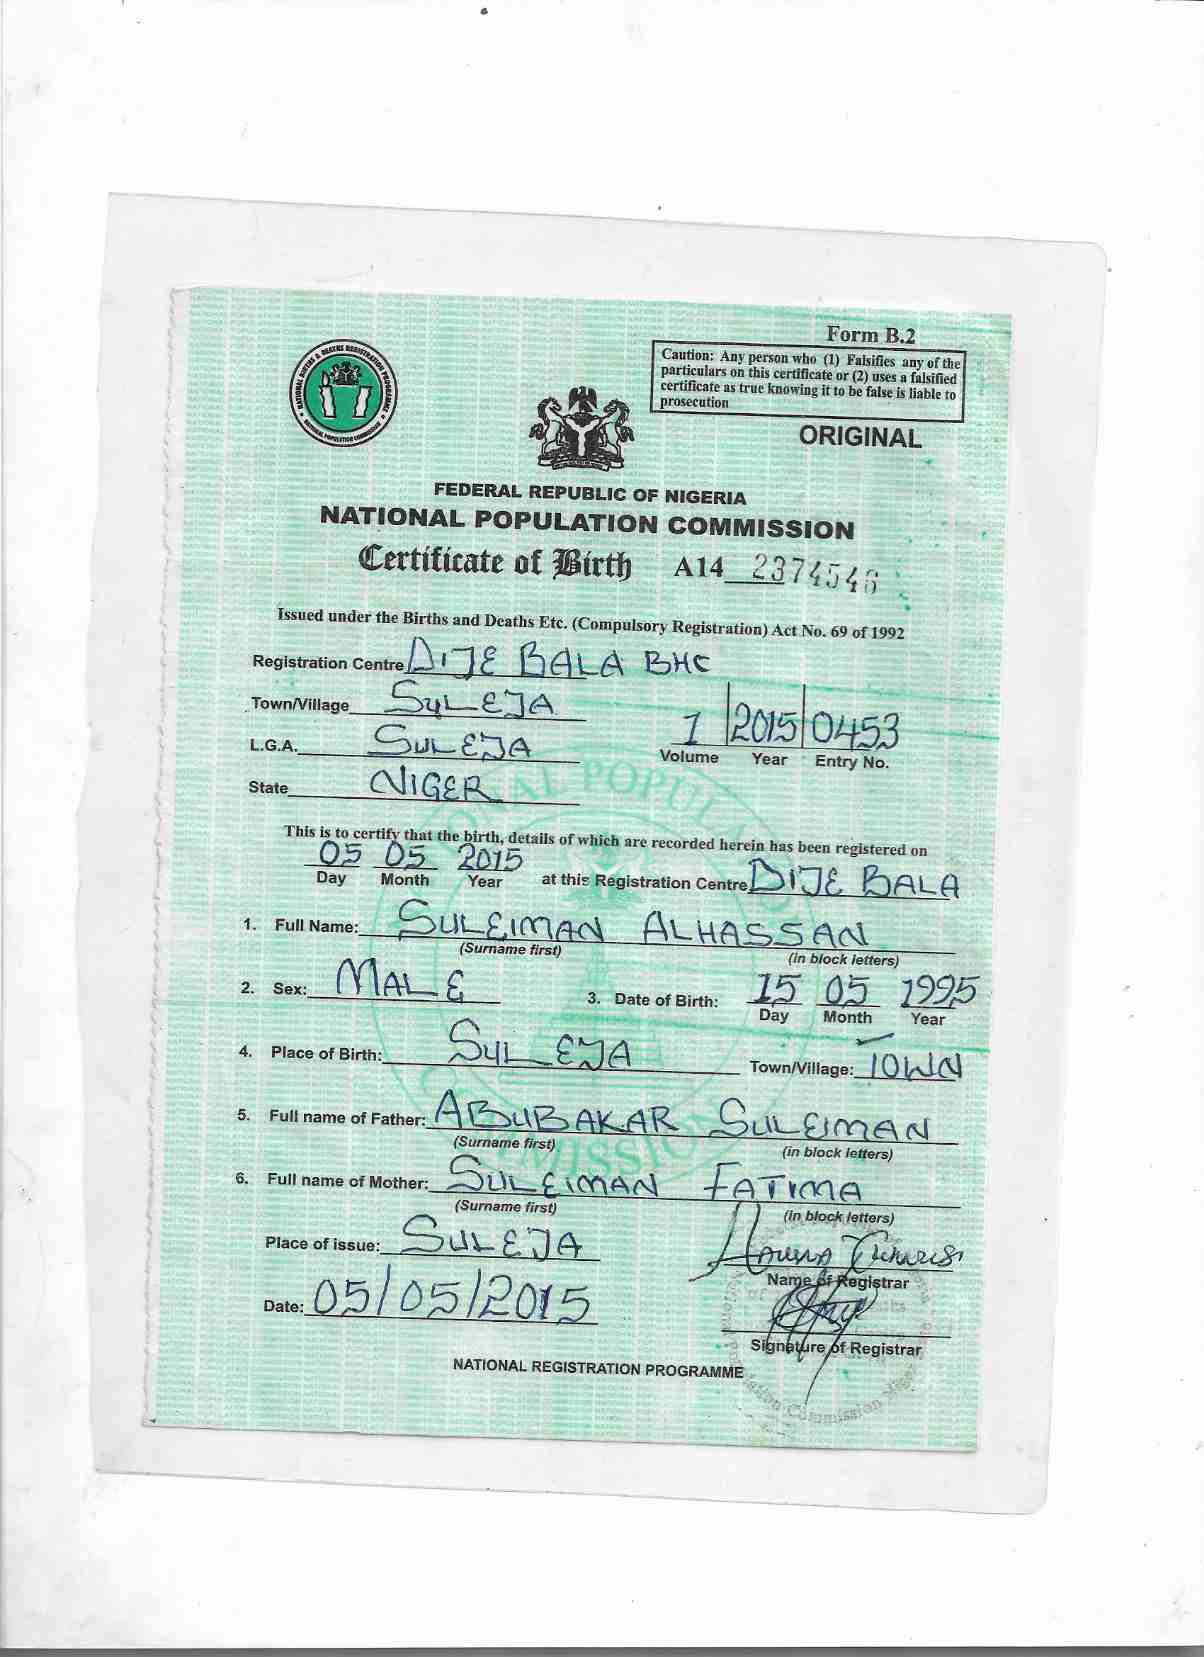 Form B.2
Caution: Any person who (1) Falsifies any of the
particulars on this certificate or (2) uses a falsified
certificate as true knowing it to be false is liable to
prosecution
NATIONAL BIRTHS & DEATHS REGISTRATION PROGRAMME
NATIONAL POPULATION COMMISSION
ORIGINAL
FEDERAL REPUBLIC OF NIGERIA
NATIONAL POPULATION COMMISSION
Certificate of Birth A14 2374546
Issued under the Births and Deaths Etc. (Compulsory Registration) Act No. 69 of 1992
Registration Centre DIJE BALA BHC
Town/Village SULEJA
L.G.A. SULEJA
1 2015 0453
Volume Year Entry No.
State NIGER
NATIONAL POPULATION COMMISSION
This is to certify that the birth, details of which are recorded herein has been registered on
05 05 2015
Day Month Year at this Registration Centre DIJE BALA
1. Full Name: SULEIMAN ALHASSAN
(Surname first) (in block letters)
2. Sex: MALE 3. Date of Birth: 15 05 1995
Day Month Year
4. Place of Birth: SULEJA Town/Village: TOWN
5. Full name of Father: ABUBAKAR SULEIMAN
(Surname first) (in block letters)
6. Full name of Mother: SULEIMAN FATIMA
(Surname first) (in block letters)
Place of issue: SULEJA
Name of Registrar
Date: 05/05/2015
Signature of Registrar
NATIONAL REGISTRATION PROGRAMME